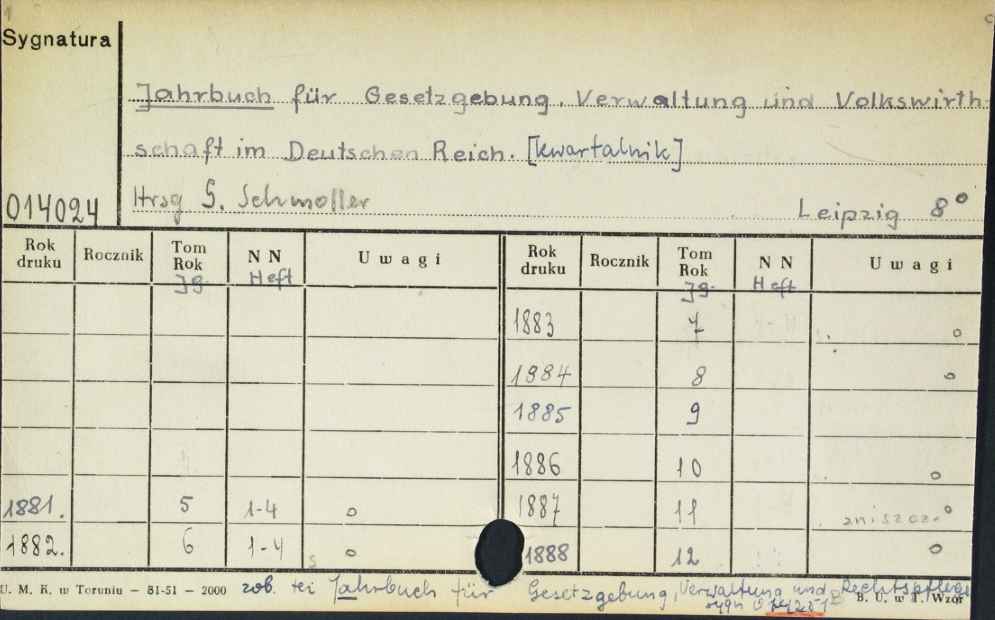 Sygnatura
Jahrbuch für Gesetzgebung, Verwaltung und Volkswirth-
schaft im Deutschen Reich. [kwartalnik]
014024 Hrsg G. Schmoller Leipzig 8°
Rok druku Rocznik Tom Rok Jg. N N Heft U w a g i Rok druku Rocznik Tom Rok Jg. N N Heft U w a g i
1883 7 o
1984 8 o
1885 9
1886 10 o
1881. 5 1-4 o 1887 11 zniszcz. o
1882. 6 1-4 s o 1888 12 o
U. M. K. w Toruniu — 81-51 — 2000 zob. tei Jahrbuch für Gesetzgebung, Verwaltung und Rechtspflege
sygn B. U. w T. Wzór